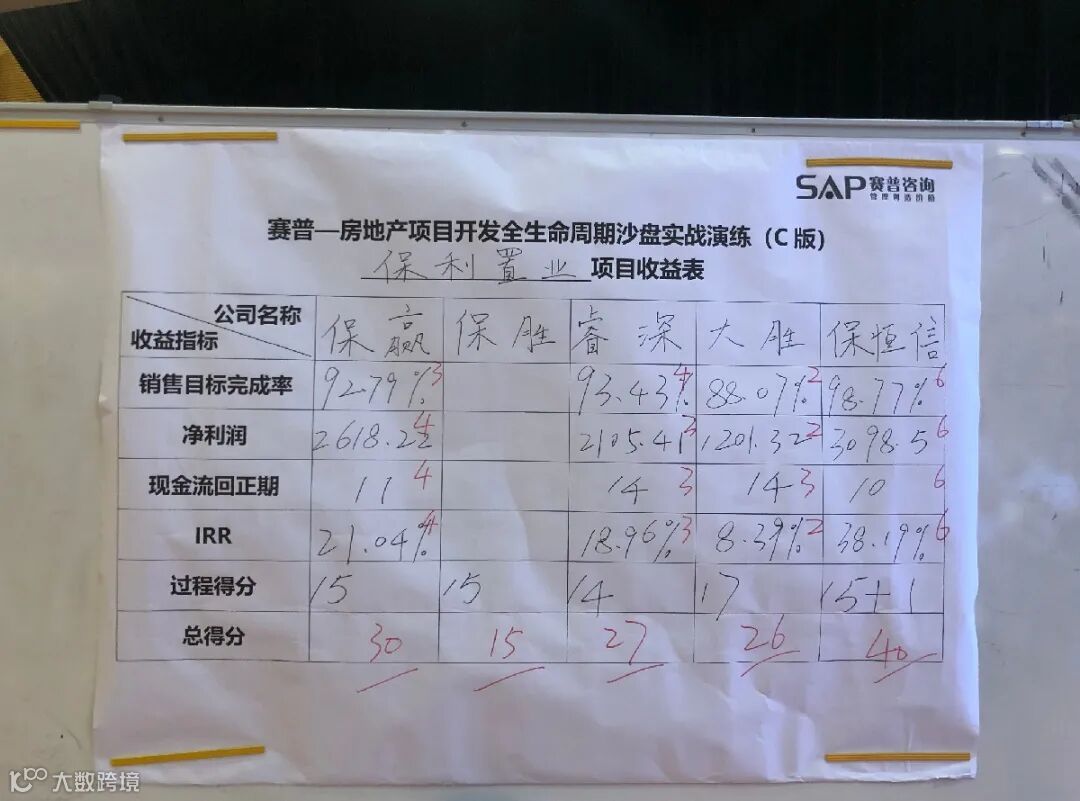 SAP 赛普咨询
管理制造价值
赛普—房地产项目开发全生命周期沙盘实战演练（C 版）
保利置业 项目收益表
公司名称
收益指标 保赢 保胜 睿深 大胜 保恒信
销售目标完成率 92.79% 3 93.43% 4 88.07% 2 98.77% 6
净利润 2618.22 4 2105.41 3 1201.32 2 3098.5 6
现金流回正期 11 4 14 3 14 3 10 6
IRR 21.04% 4 18.96% 3 8.39% 2 38.19% 6
过程得分 15 15 14 17 15+1
总得分 30 15 27 26 40
大数跨境